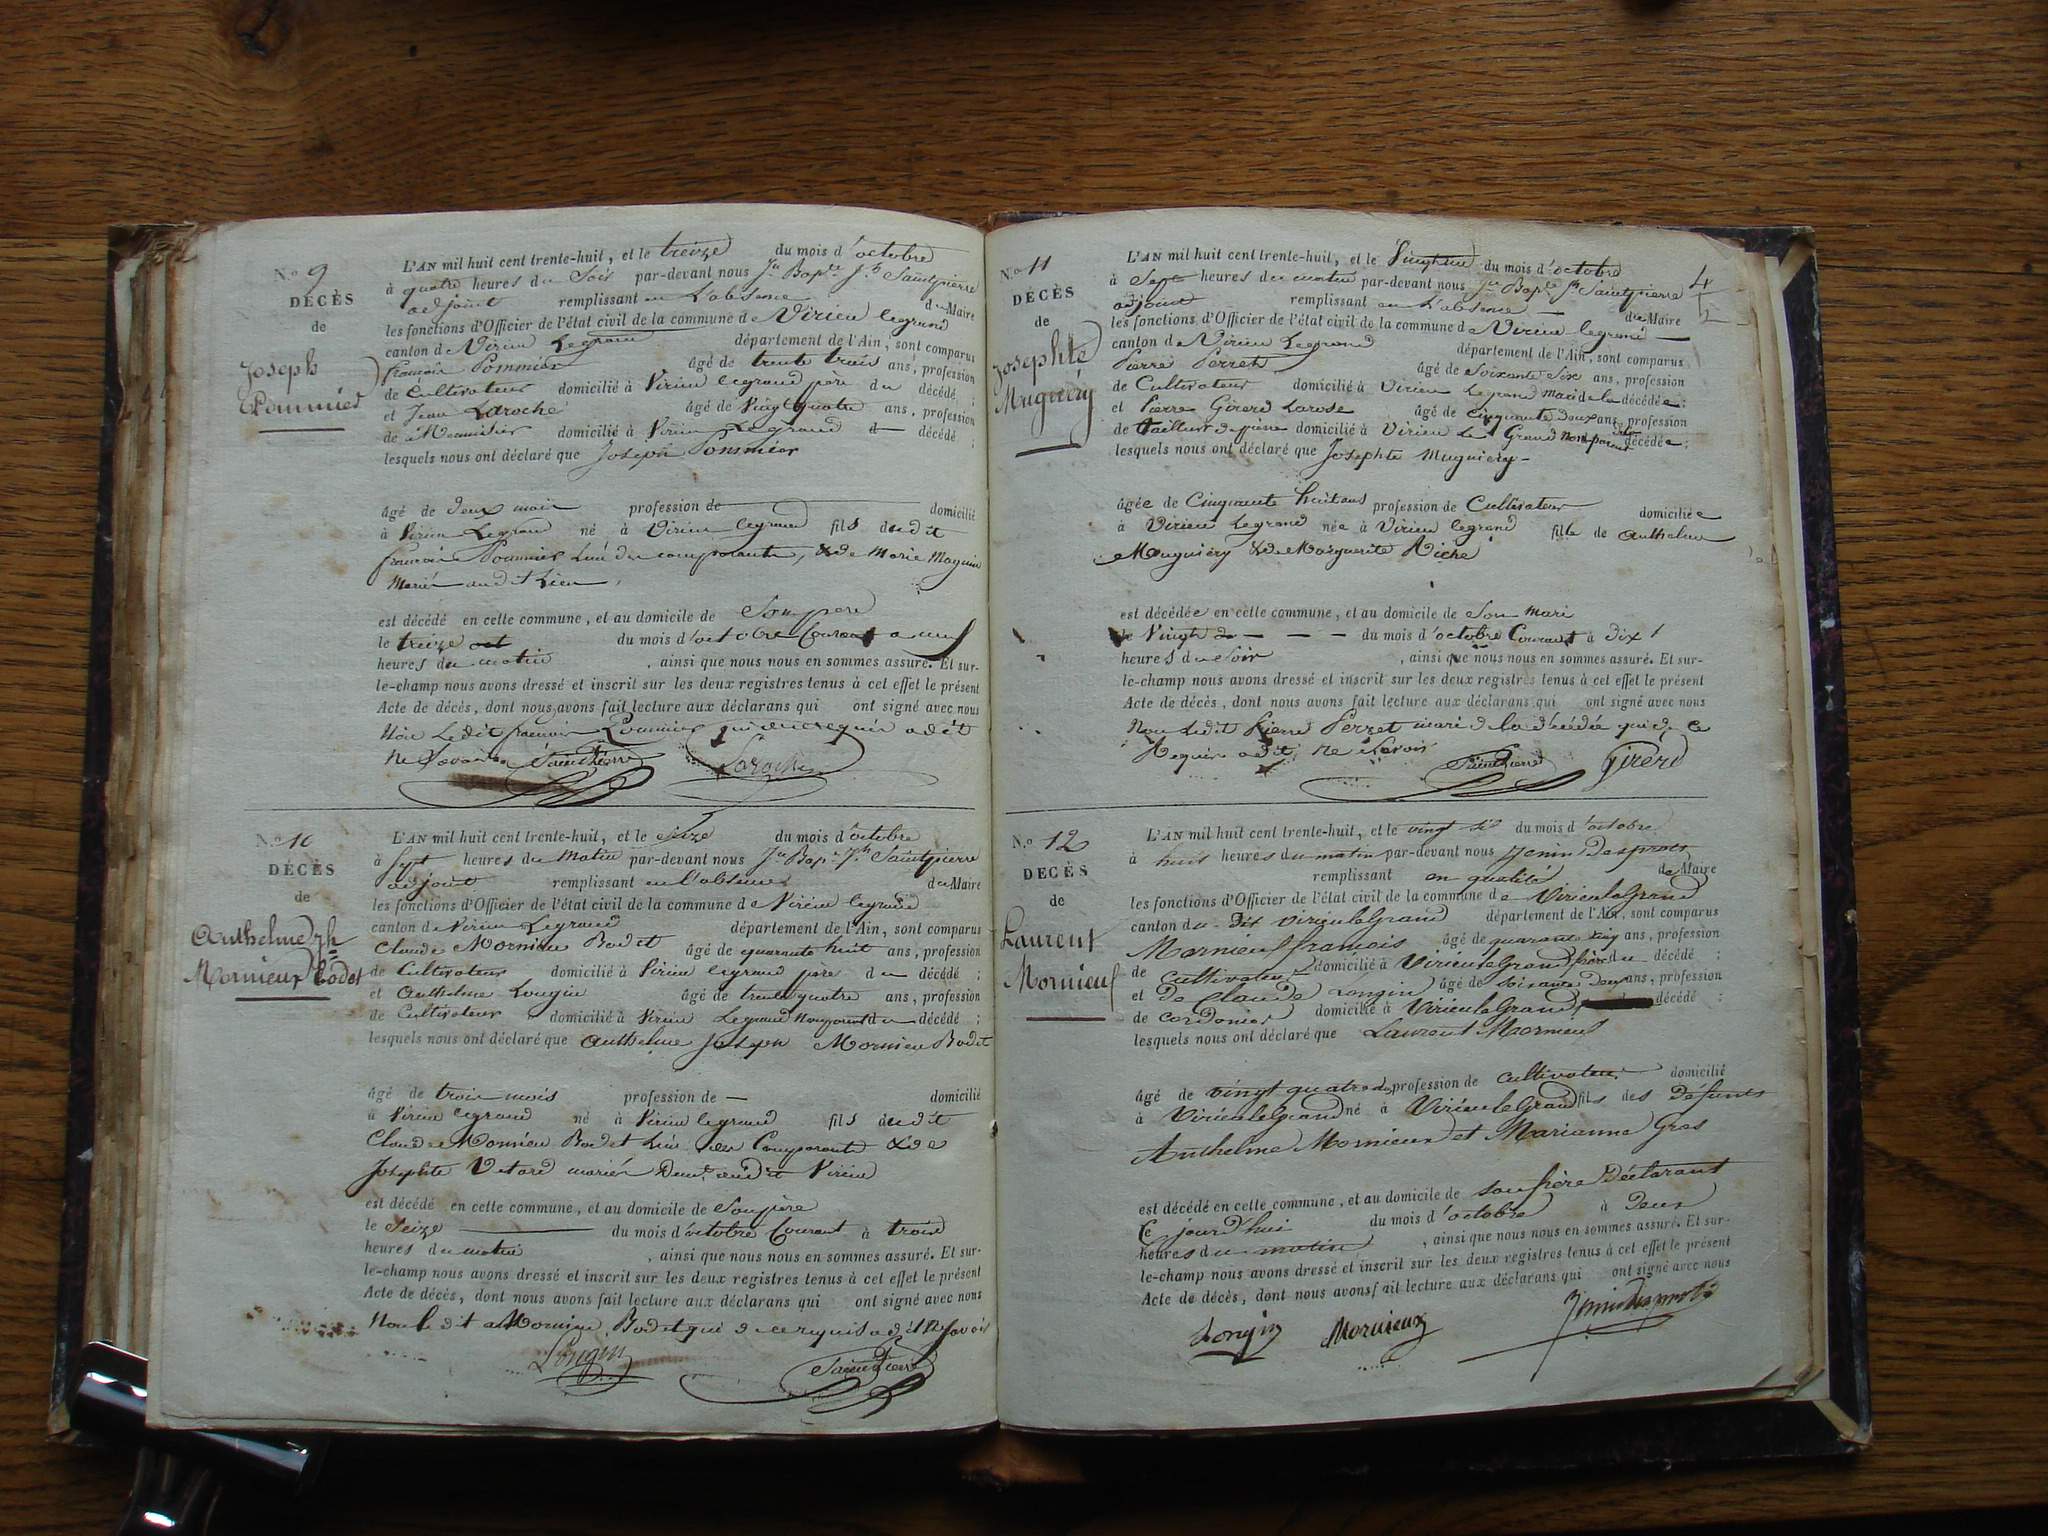 N.o 9
DÉCÈS
de
Joseph
Pommier
L'AN mil huit cent trente-huit, et le treize du mois d'octobre
à quatre heures du Soir par-devant nous Jn Bapte Jh Saintpierre
adjoint remplissant en L'absence du Maire
les fonctions d'Officier de l'état civil de la commune de Virieu legrand
canton de Virieu Legrand département de l'Ain, sont comparus
françois Pommier âgé de trente trois ans, profession
de Cultivateur domicilié à Virieu legrand père du décédé ;
et Jean Laroche âgé de Vingt quatre ans, profession
de Menuisier domicilié à Virieu Legrand d décédé ;
lesquels nous ont déclaré que Joseph Pommier
âgé de deux mois profession de domicilié
à Virieu Legrand né à Virieu legrand fils dudit
françois Pommier Lun des comparants, & de Marie Maguin
Mariés audit Lieu,
est décédé en cette commune, et au domicile de Son pere
le treize du mois d'octobre Courant a
heures du matin , ainsi que nous nous en sommes assuré. Et sur-
le-champ nous avons dressé et inscrit sur les deux registres tenus à cet effet le présent
Acte de décès, dont nous avons fait lecture aux déclarans qui ont signé avec nous
Non Ledit françois Pommier qui de ce requis a dit
ne Savoir Saintpierre Laroche
N.o 10
DÉCÈS
de
Anthelme Jh
Mornieux Bodet
L'AN mil huit cent trente-huit, et le Seize du mois d'octobre
à Sept heures du Matin par-devant nous Jn Bapt Jh Saintpierre
adjoint remplissant en l'absence du Maire
les fonctions d'Officier de l'état civil de la commune de Virieu legrand
canton de Virieu Legrand département de l'Ain, sont comparus
Claude Mornieu Bodet âgé de quarante huit ans, profession
de Cultivateur domicilié à Virieu legrand père du décédé ;
et Anthelme Longin âgé de trente quatre ans, profession
de Cultivateur domicilié à Virieu Legrand Non parent du décédé ;
lesquels nous ont déclaré que Anthelme Joseph Mornieu Bodet
âgé de trois mois profession de — domicilié
à Virieu legrand né à Virieu legrand fils dudit
Claude Mornieu Bodet Lun des Comparants & de
Josephte Vetard mariés audit Virieu
est décédé en cette commune, et au domicile de Son père
le Seize du mois d'octobre Courant à trois
heures du matin , ainsi que nous nous en sommes assuré. Et sur-
le-champ nous avons dressé et inscrit sur les deux registres tenus à cet effet le présent
Acte de décès, dont nous avons fait lecture aux déclarans qui ont signé avec nous
Non le dit Mornieu Bodet qui de ce requis a dit ne Savoir
Longin Saintpierre
N.o 11
DÉCÈS
de
Josephte
Muguiery
L'AN mil huit cent trente-huit, et le Vingt du mois d'octobre
à Sept heures du matin par-devant nous Jn Bapte Jh Saintpierre
adjoint remplissant en L'absence — du Maire
les fonctions d'Officier de l'état civil de la commune de Virieu legrand —
canton de Virieu Legrand département de l'Ain, sont comparus
Pierre Perret âgé de Soixante Six ans, profession
de Cultivateur domicilié à Virieu Legrand Mari de la décédée ;
et Pierre Girerd Larose âgé de cinquante deux ans, profession
de tailleur de pierre domicilié à Virieu Le Grand non parent de la décédée ;
lesquels nous ont déclaré que Josephte Muguiery —
âgée de Cinquante huit ans profession de Cultivateur domiciliée
à Virieu Legrand née à Virieu legrand fille de Anthelme
Muguiery & de Marguerite Riche
est décédée en cette commune, et au domicile de Son Mari
le Vingt — — — du mois d'octobre Courant à Dix
heures du Soir , ainsi que nous nous en sommes assuré. Et sur-
le-champ nous avons dressé et inscrit sur les deux registres tenus à cet effet le présent
Acte de décès, dont nous avons fait lecture aux déclarans qui ont signé avec nous
Non Ledit Pierre Perret mari de la décédée qui de ce
Requis a dit ne Savoir Saintpierre Girerd
4
12
N.o 12
DÉCÈS
de
Laurent
Mornieux
L'AN mil huit cent trente-huit, et le vingt six du mois d'octobre
à huit heures du matin par-devant nous Jenin Desprots
remplissant en qualité de Maire
les fonctions d'Officier de l'état civil de la commune de Virieu le Grand
canton du Dit Virieu le Grand département de l'Ain, sont comparus
Mornieux françois âgé de quarante cinq ans, profession
de Cultivateur domicilié à Virieu le Grand frère du décédé ;
et de Claude Longin âgé de soixante Deux ans, profession
de Cordonier domicilié à Virieu le Grand décédé ;
lesquels nous ont déclaré que Laurent Mornieux
âgé de vingt quatre ans profession de cultivateur domicilié
à Virieu le Grand né à Virieu le Grand fils des Défunts
Anthelme Mornieux et Marianne Gros
est décédé en cette commune, et au domicile de son frère Déclarant
Ce jourd'hui du mois d'octobre à Deux
heures du matin , ainsi que nous nous en sommes assuré. Et sur-
le-champ nous avons dressé et inscrit sur les deux registres tenus à cet effet le présent
Acte de décès, dont nous avons fait lecture aux déclarans qui ont signé avec nous
Longin Mornieux Jenin Desprots